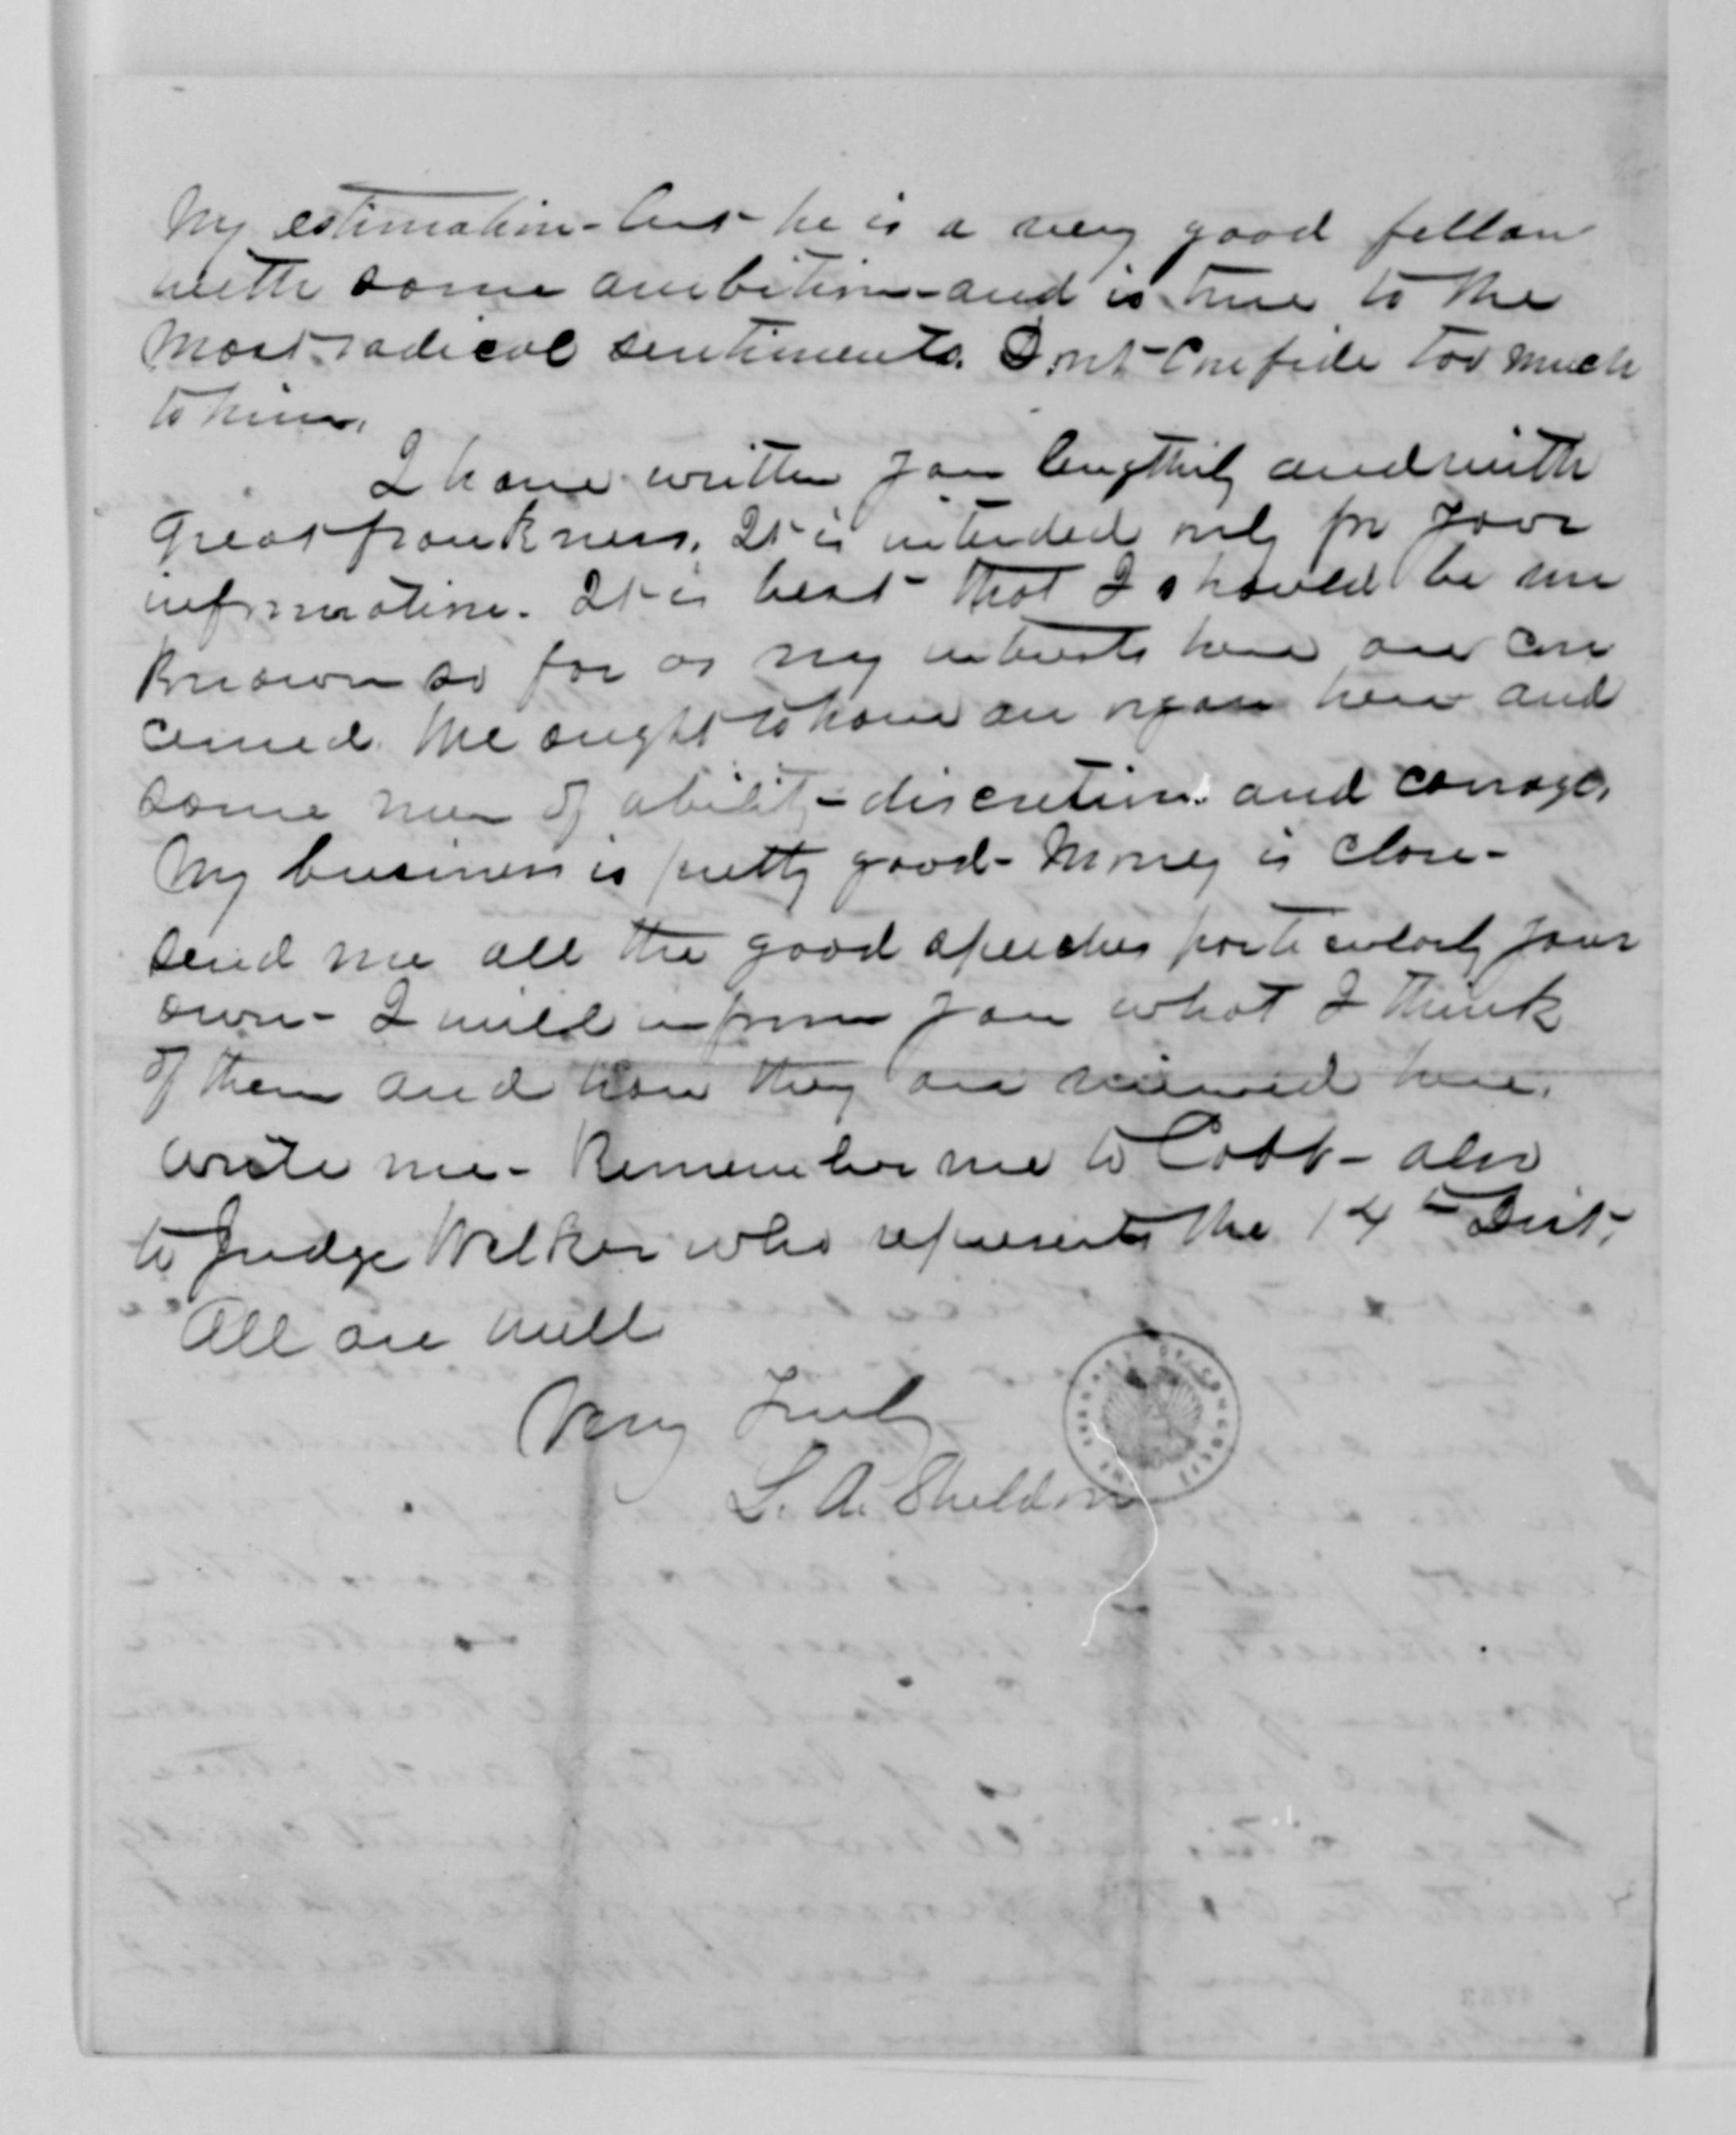 my estimation - but he is a very good fellow
with some ambition - and is true to the
most radical sentiments. Dont confide too much
to him.
I have written you lengthily and with
great frankness. It is intended only for your
information. It is best that I should be un
known so far as my interests here are con
cerned. We ought to have an organ here and
some men of ability - discretion and courage.
My business is pretty good - Money is close -
Send me all the good speeches particularly your
own - I will inform you what I think
of them and how they are viewed here.
Write me - Remember me to Cobb - also
to Judge Welker who represents the 14th Dist.
All are well
Very Truly
L. A. Sheldon